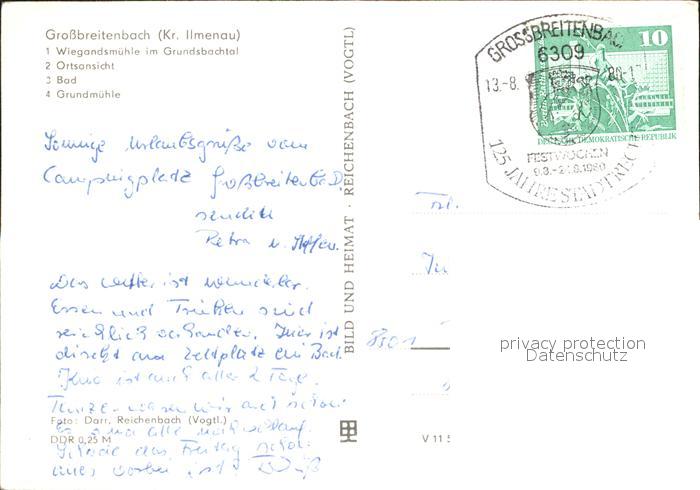 Großbreitenbach (Kr. Ilmenau)
1 Wiegandsmühle im Grundsbachtal
2 Ortsansicht
3 Bad
4 Grundmühle
Sonnige Urlaubsgrüße vom
Campingplatz Großbreitenbach
senden
Petra u. Steffen.
Das Wetter ist wunderbar.
Essen und Trinken sind
reichlich vorhanden. Hier ist
direkt am Zeltplatz ein Bad.
Kino ist auch aller 2 Tage.
Tanzen waren wir auch schon
Schade das Freitag schon
alles vorbei ist!
Foto: Darr, Reichenbach (Vogtl.)
DDR 0,25 M
BILD UND HEIMAT · REICHENBACH (VOGTL)
V 11 5
GROSSBREITENBAC
6309
13.-8.
80-1
FESTWOCHEN
9.8.-24.8.1980
125 JAHRE STADTRECHT
10
DEUTSCHE DEMOKRATISCHE REPUBLIK
8301
privacy protection
Datenschutz